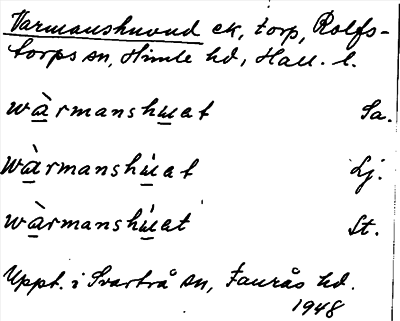 Varmanshuvud ek, torp, Rolfs-
torps sn, Himle hd, Hall. l.
wàrmanshu̲at Sa.
wàrmanshu̲̇at Lj.
wàrmanshu̲̇at St.
Uppt. i Svartrå sn, Faurås hd.
1948